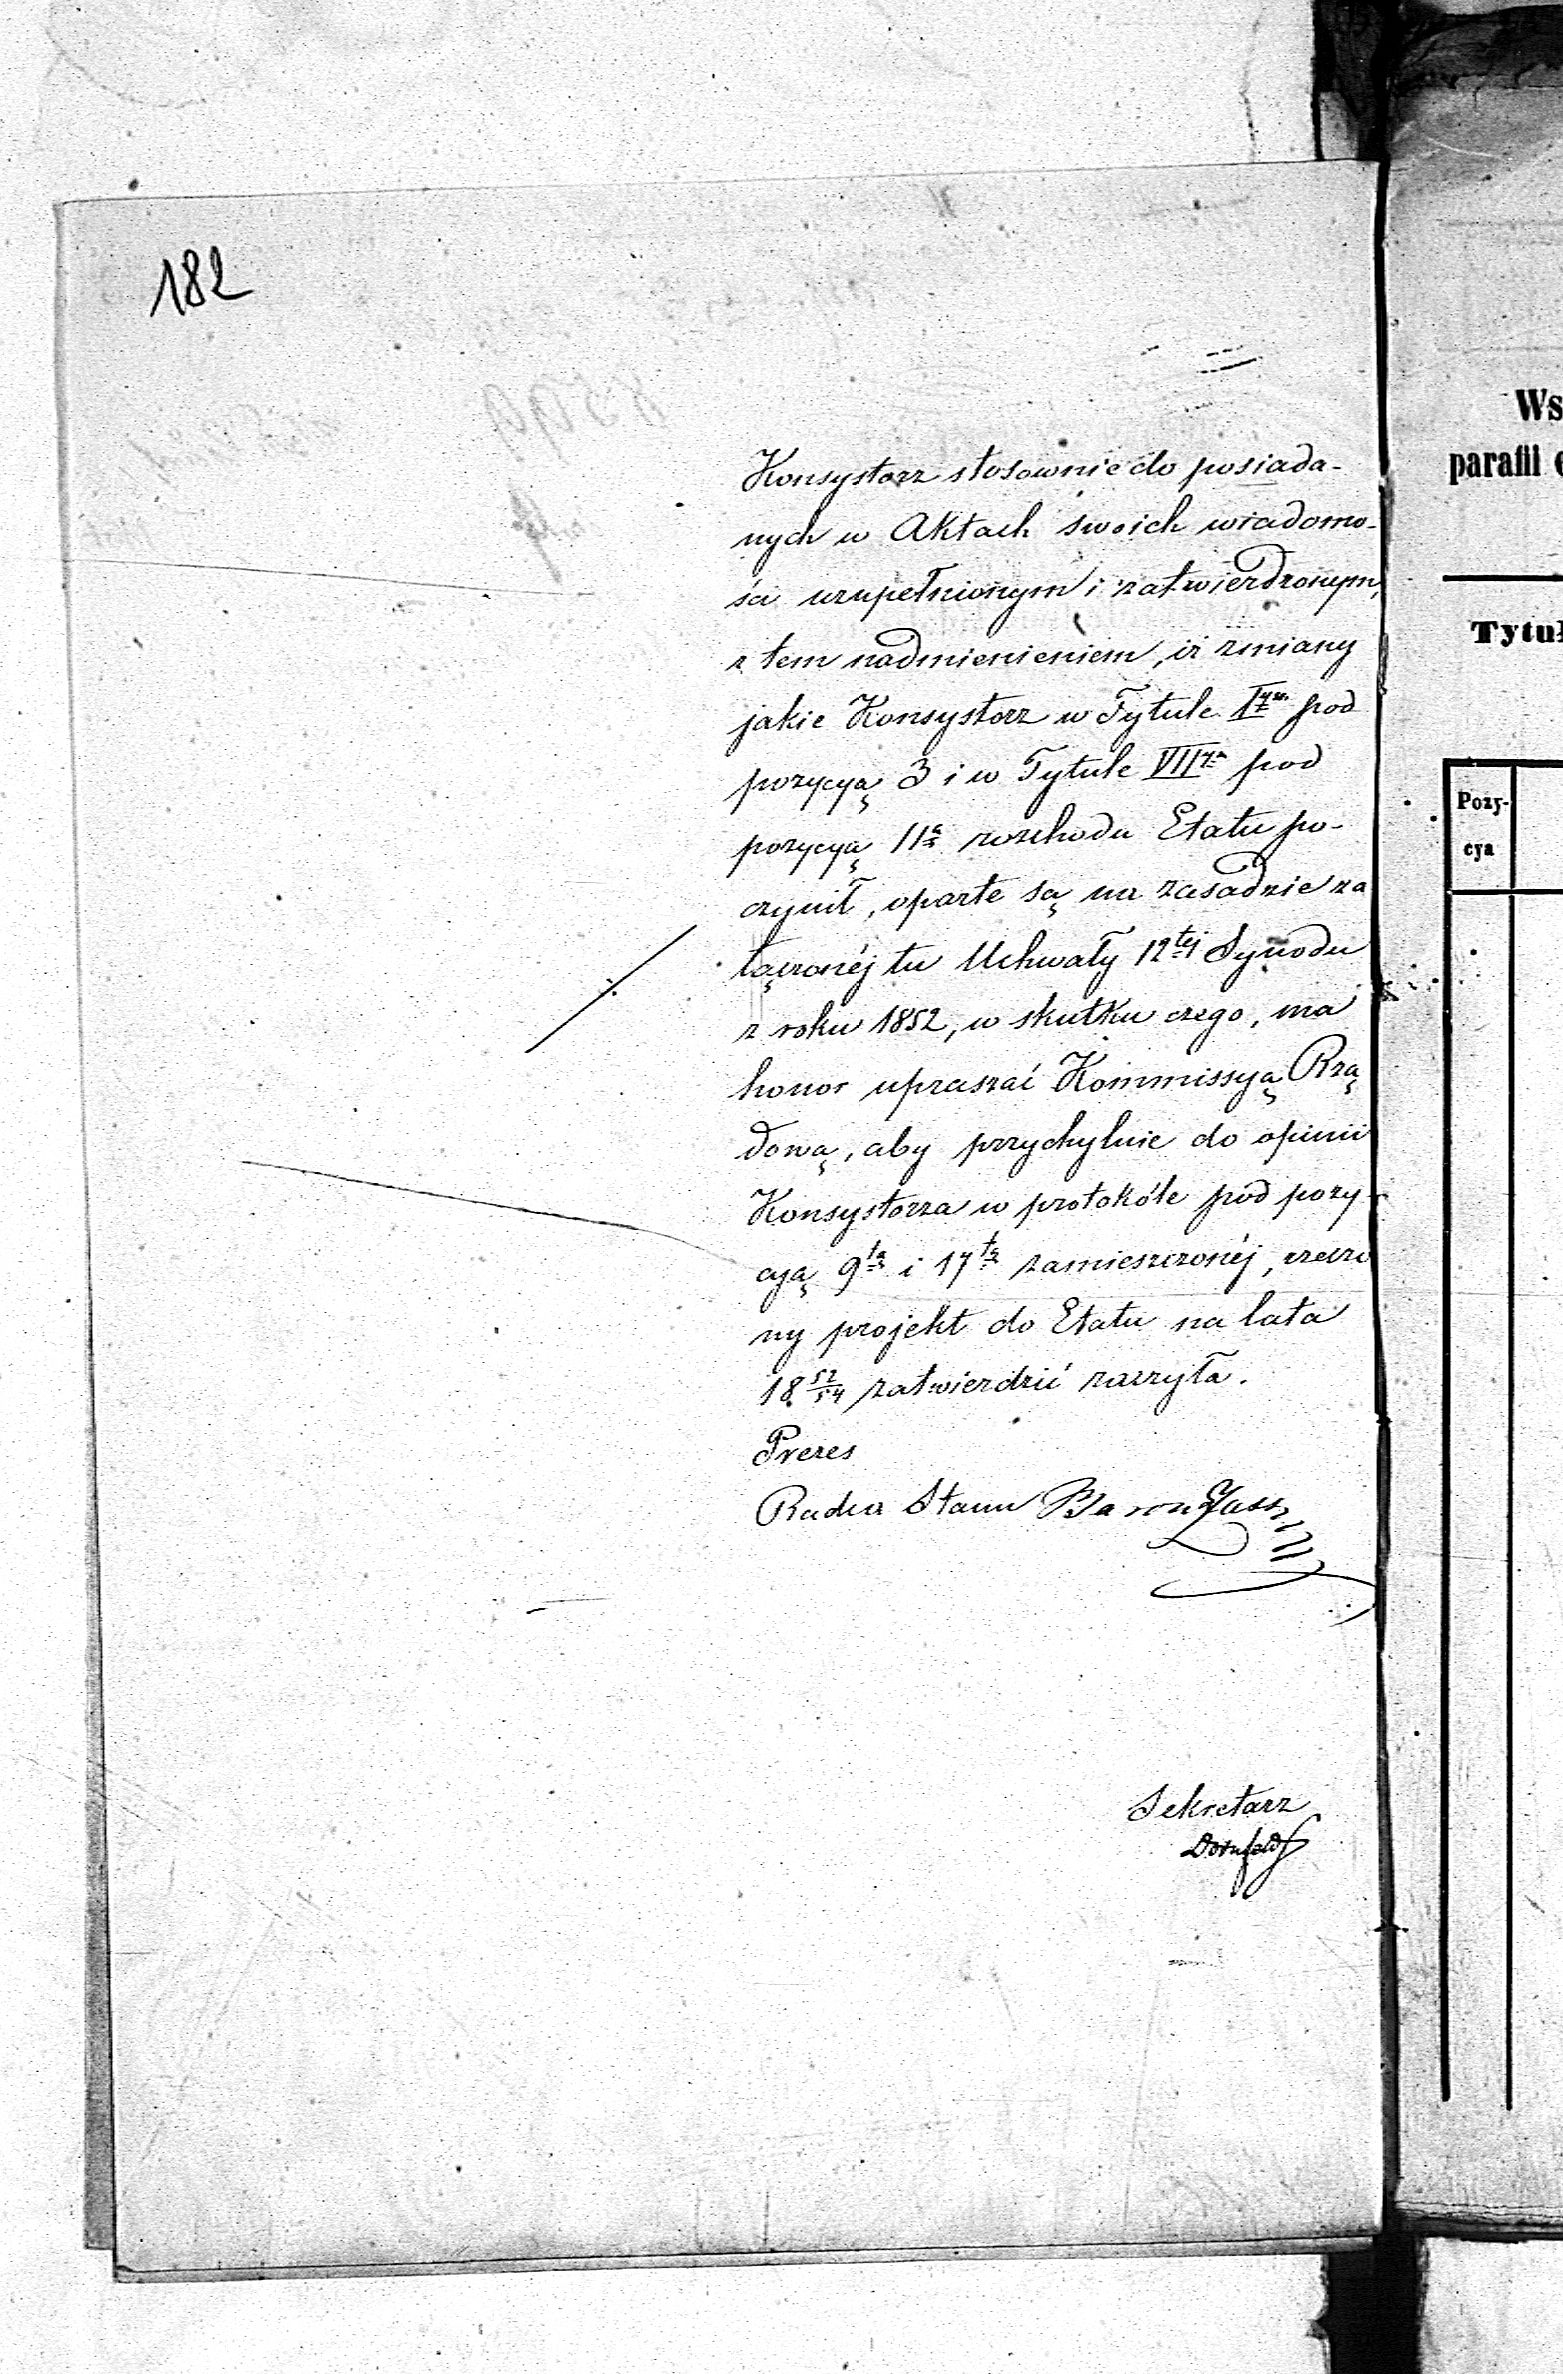 182
Konsystorz stosownie do posiada-
nych w Aktach swoich wiadomo-
ści uzupełnionym i zatwierdzonym,
z tem nadmienieniem, iż zmiany
jakie Konsystorz w Tytule I<sup>ym</sup> pod
pozycyą 3 i w Tytule VII<sup>ym</sup> pod
pozycyą 11<sup>ą</sup> rozchodu Etatu po-
czynił, oparte są na zasadzie za
łączonéj tu Uchwały 12<sup>tej</sup> Synodu
z roku 1852, w skutku czego, ma
honor upraszać Kommissyą Rzą
dową, aby przychylnie do opinii
Konsystorza w protokóle pod pozy-
cyą 9<sup>tą</sup> i 17<sup>tą</sup> zamieszczonéj, rzeczo
ny projekt do Etatu na lata
18 52/54 zatwierdzić raczyła.
Prezes
Radca Stanu Baron
Sekretarz
Ws
parafii
Tytuł
Pozy-
cya